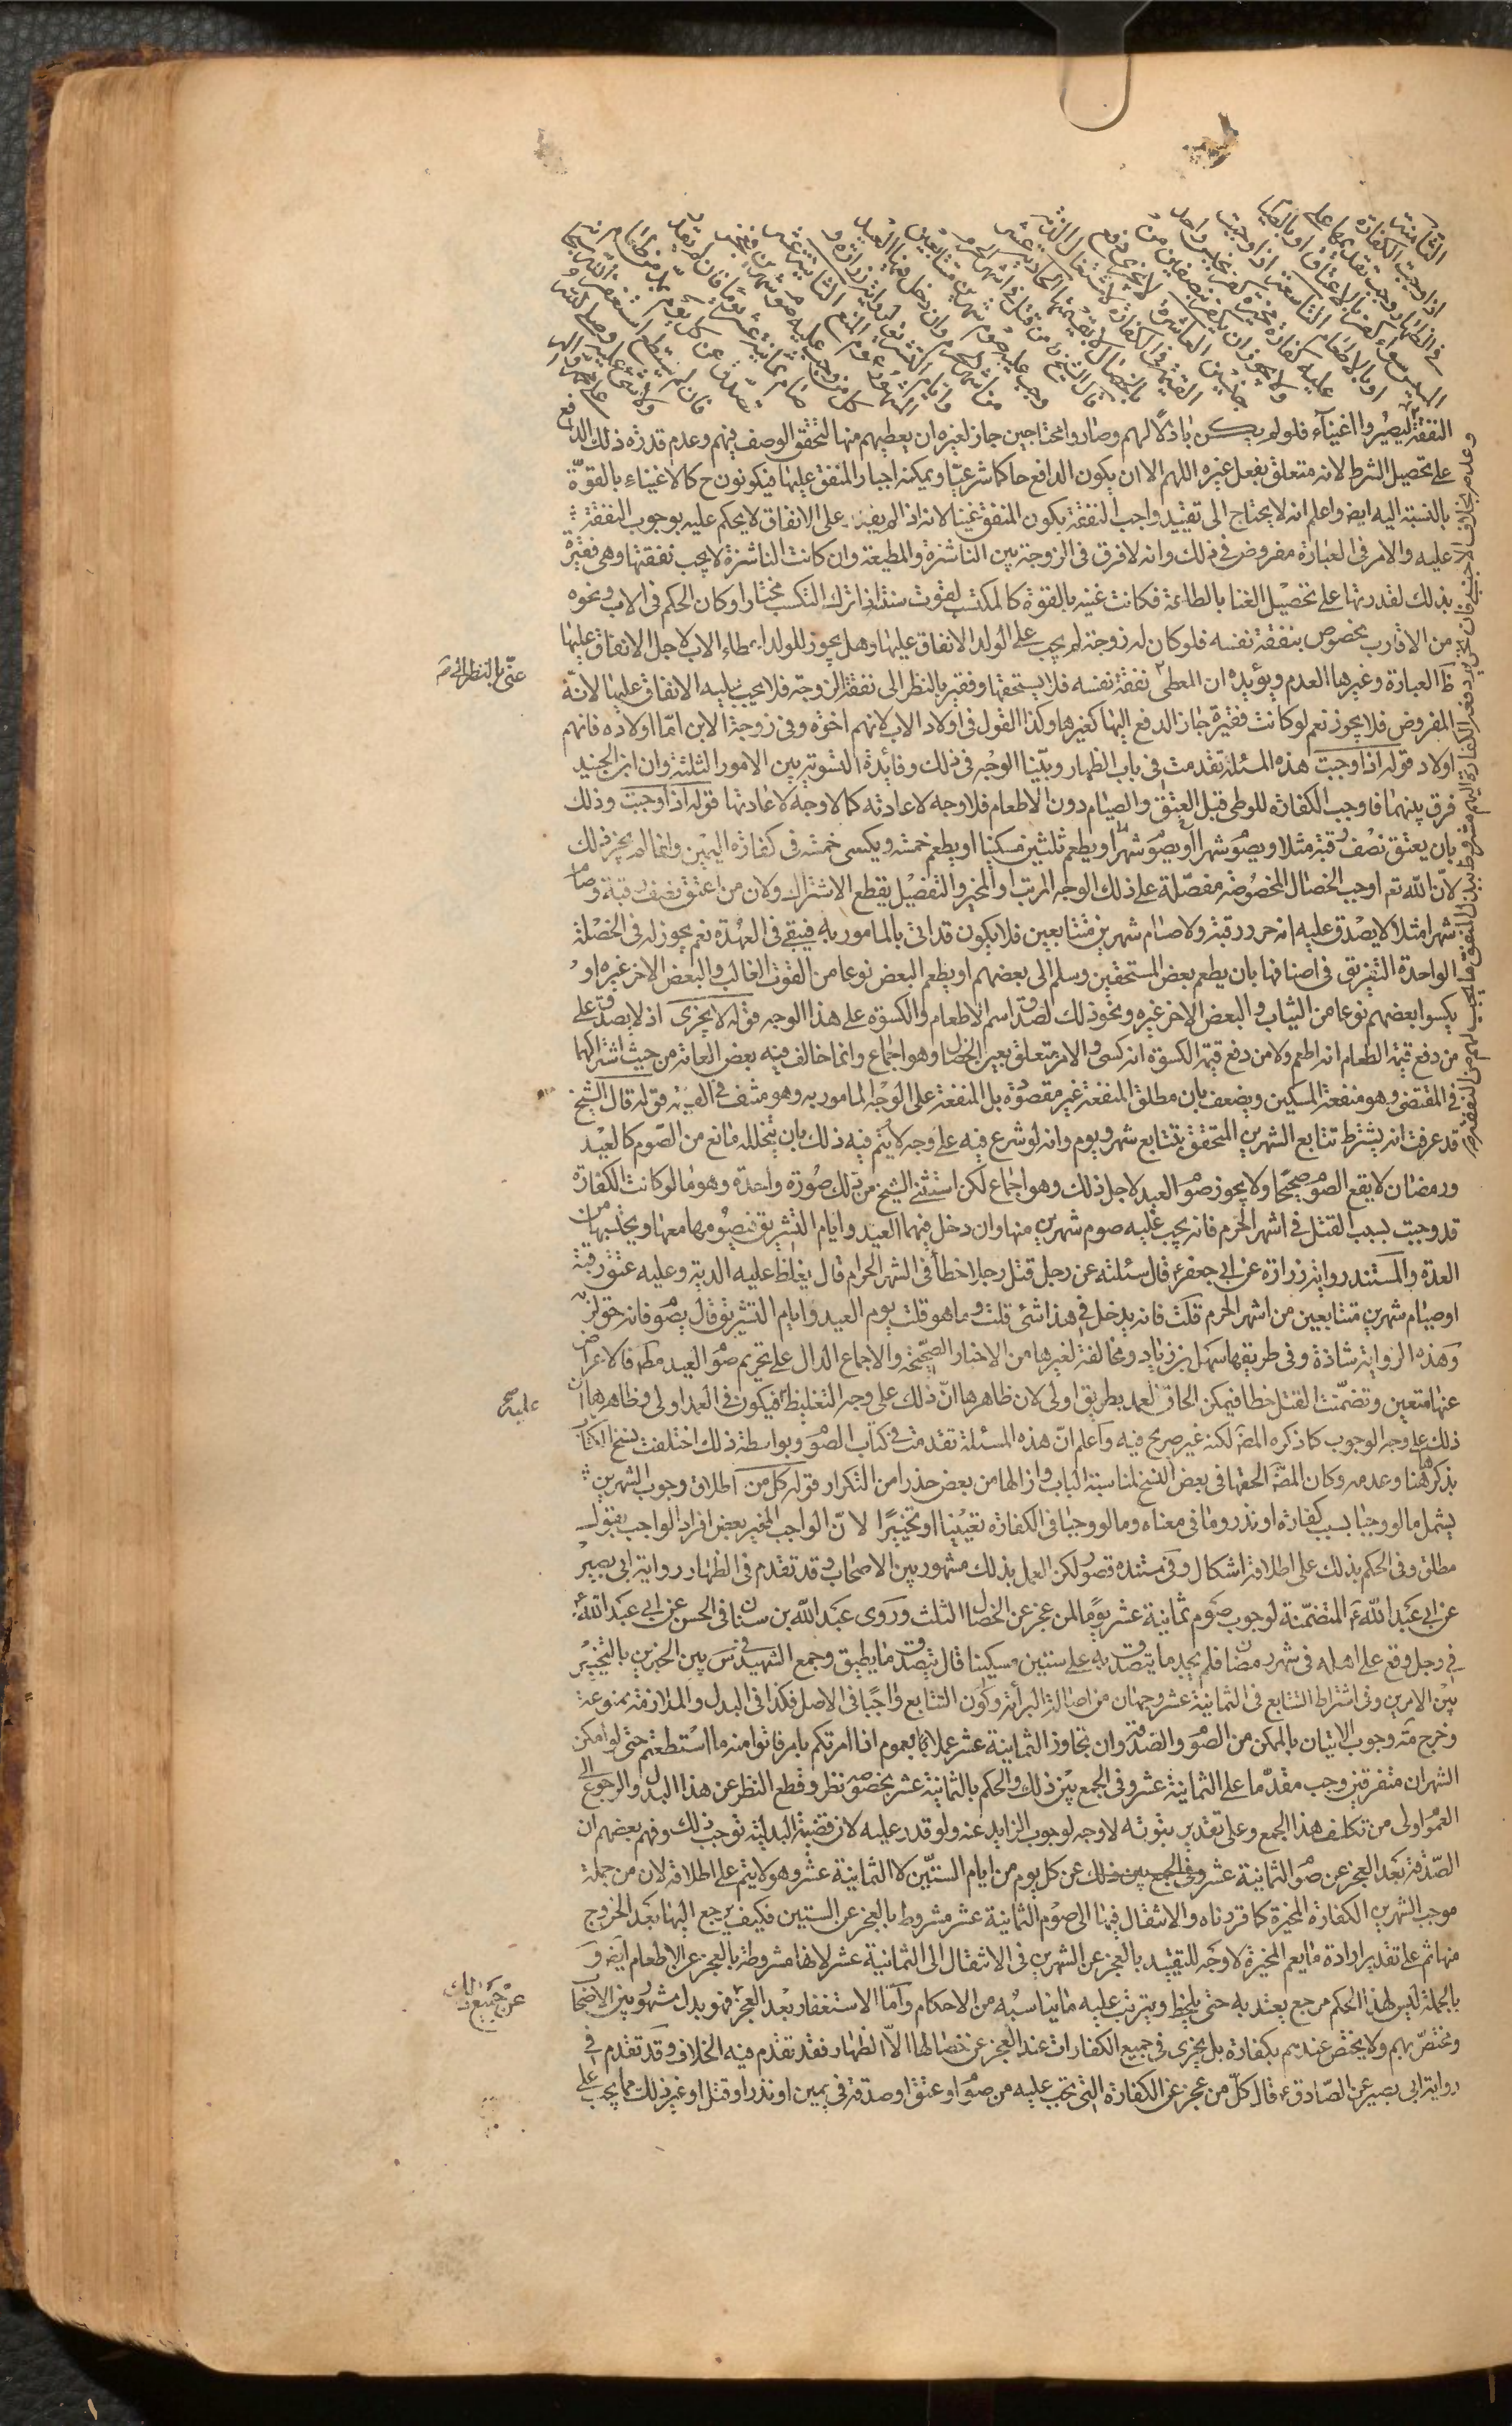 الثامنة
اذا وجبت الكفارة
في الظهار وجب تقديمها على
المسيس سواء كفر بالاعتاق او بالصيام
او بالاطعام التاسعة اذا وجبت
عليه كفارة مخيرة كفر بجنس واحد
ولا يجوز ان يكفر بنصفين من
جنسين العاشرة لا يجزي دفع
القيمة في الكفارة لاشتغال الذمة
بالخصال لا بقيمتها الحادية عشر
قال الشيخ من قتل في اشهر الحرم
وجب عليه صوم شهرين متتابعين
من اشهر الحرم وان دخل فيهما العيد
وايام التشريق لرواية زرارة و
المشهور عموم المنع الثانية عشر
كل من وجب عليه صوم شهرين فعجز
صام ثمانية عشر يوما فان لم يقدر
تصدق عن كل يوم بمد من طعام
فان لم يستطع استغفر الله سبحانه
ولا شيء عليه
النفقة ليصيروا اغنيآء فلو لم يكن باذلا لهم وصاروا محتاجين جاز لغيره ان يعطيهم منها لتحقق الوصف فيهم وعدم قدرة ذلك الدافع
على تحصيل الشرط لانه متعلق بفعل غيره اللهم الا ان يكون الدافع حاكما شرعيا ويمكنه اجبار المنفق عليها فيكونون ح كالاغنياء بالقوة
بالنسبة اليه ايض واعلم انه لا يحتاج الى تقييد واجب النفقة بكون المنفق غنيا لانه اذا لم يقدر على الانفاق لا يحكم عليه بوجوب النفقة
عليه والامر في العبارة مفروض في ذلك وانه لا فرق في الزوجة بين الناشزة والمطيعة وان كانت الناشزة لا يجب نفقتها وهي فقيرة
بذلك لقدرتها على تحصيل الغنا بالطاعة فكانت غنية بالقوة كالمكتسب لقوت سنته اذا ترك التكسب مختارا وكان الحكم في الاب ونحوه
من الاقارب بخصوص بنفقة نفسه فلو كان له زوجة لم يجب على الولد الانفاق عليها وهل يجوز للولد اعطاء الاب لاجل الانفاق عليها
ظ العبارة وغيرها العدم ويؤيده ان المعطى نفقة نفسه فلا يستحقها وفقير بالنظر الى نفقة الزوجة فلا يجب عليه الانفاق عليها لانه
المفروض فلا يجوز نعم لو كانت فقيرة جاز الدفع اليها كغيرها وكذا القول في اولاد الاب لانهم اخوة وفي زوجة الابن اما اولاده فانهم
اولاد قوله اذا وجبت هذه المسئلة تقدمت في باب الظهار وبينا الوجه في ذلك وفائدة التسوية بين الامور الثلثة وان ابن الجنيد
فرق بينهما فاوجب الكفارة للوطي قبل العتق والصيام دون الاطعام فلا وجه لاعادته كما لا وجه لاعادتها قوله اذا وجبت وذلك
بان يعتق نصف رقبة مثلا ويصوم شهرا او يصوم شهرا ويطعم ثلثين مسكينا او يطعم خمسة ويكسي خمسة في كفارة اليمين وانما لم يجز ذلك
لان الله تع اوجب الخصال المخصوصة مفصلة على ذلك الوجه المرتب او المخير والتفصيل يقطع الاشتراك ولان من اعتق نصف رقبة وصام
شهرا مثلا لا يصدق عليه انه حرر رقبة ولا صام شهرين متتابعين فلا يكون قد اتى بالمامور به فيبقى في العهدة نعم يجوز له في الخصلة
الواحدة التفريق في اصنافها بان يطعم بعض المستحقين وسلم الى بعضهم او يطعم البعض نوعا من القوت الغالب والبعض الاخر غيره او
يكسوا بعضهم نوعا من الثياب والبعض الاخر غيره ونحو ذلك لصدق اسم الاطعام والكسوة على هذا الوجه قوله لا يجزي اذ لا يصدق على
من دفع قيمة الطعام انه اطعم ولا من دفع قيمة الكسوة انه كسى والامر متعلق بعين الخصال وهو اجماع وانما خالف فيه بعض العامة من حيث اشتراكهما
في المقتضي وهو منفعة المسكين ويضعف بان مطلق المنفعة غير مقصودة بل المنفعة على الوجه المامور به وهو منتف في القيمة قوله قال الشيخ
قد عرفت انه يشترط تتابع الشهرين المتحقق بتتابع شهر ويوم وانه لو شرع فيه على وجه لا يتم فيه ذلك بان يتخلله مانع من الصوم كالعيد
ورمضان لا يقع الصوم صحيحا ولا يجوز صوم العيد لاجل ذلك وهو اجماع لكن استثنى الشيخ من ذلك صورة واحدة وهو ما لو كانت الكفارة
قد وجبت بسبب القتل في اشهر الحرم فانه يجب عليه صوم شهرين منها وان دخل فيهما العيد وايام التشريق فيصومهما معها ويحتسبها من
العدة والمستند رواية زرارة عن ابي جعفر ع قال سئلته عن رجل قتل رجلا خطأ في الشهر الحرام قال يغلظ عليه الدية وعليه عتق رقبة
او صيام شهرين متتابعين من اشهر الحرم قلت فانه يدخل في هذا شئ قلت وما هو قلت يوم العيد وايام التشريق قال يصوم فانه حق لزمه
وهذه الرواية شاذة وفي طريقها سهل بن زياد ومخالفة لغيرها من الاخبار الصحيحة والاجماع الدال على تحريم صوم العيد مطلقا فالاعراض
عنها متعين وتضمنت القتل خطا فيمكن الحاق العمد بطريق اولى لان ظاهرها ان ذلك على وجه التغليظ فيكون في العمد اولى وظاهرها ان
ذلك على وجه الوجوب كما ذكره المص لكنه غير صريح فيه واعلم ان هذه المسئلة تقدمت في كتاب الصوم وبواسطة ذلك اختلفت نسخ الكتاب
بذكرها هنا وعدمه وكان المص الحقها في بعض النسخ لمناسبة الباب وازالها من بعض حذرا من التكرار قوله كل من اطلاق وجوب الشهرين
يشمل ما لو وجبا بسبب كفارة او نذر وما في معناه وما لو وجبا في الكفارة تعيينا او تخييرا لان الواجب المخير بعض افراد الواجب بقول
مطلق وفي الحكم بذلك على اطلاقه اشكال وفي مستنده قصور لكن العمل بذلك مشهور بين الاصحاب وقد تقدم في الظهار رواية ابي بصير
عن ابي عبد الله ع المتضمنة لوجوب صوم ثمانية عشر يوما لمن عجز عن الخصال الثلث وروى عبد الله بن سنان في الحسن عن ابي عبد الله ع
في رجل وقع على اهله في شهر رمضان فلم يجد ما يتصدق به على ستين مسكينا قال يتصدق ما يطيق وجمع الشهيد في س بين الخبرين بالتخيير
بين الامرين وفي اشتراط التتابع في الثمانية عشر وجهان من اصالة البرأة وكون التتابع واجبا في الاصل فكذا في البدل والملازمة ممنوعة
وخرج مة وجوب الاتيان بالممكن من الصوم والصدقة وان تجاوز الثمانية عشر عملا بعموم اذا امرتكم بامر فاتوا منه ما استطعتم حتى لو امكن
الشهران متفرقين وجب مقدما على الثمانية عشر وفي الجمع بين ذلك والحكم بالثمانية عشر بخصوصه نظر وقطع النظر عن هذا البدل والرجوع الى
العموم اولى من تكلف هذا الجمع وعلى تقدير ثبوته لا وجه لوجوب الزايد عنه ولو قدر عليه لان قضية البدلية توجب ذلك وفهم بعضهم ان
الصدقة بعد العجز عن صوم الثمانية عشر وفي الجمع بين ذلك عن كل يوم من ايام الستين لا الثمانية عشر وهو لا يتم على اطلاقه لان من جملة
موجب الشهرين الكفارة المخيرة كما قررناه والانتقال فيها الى صوم الثمانية عشر مشروط بالعجز عن الستين فكيف يرجع اليها بعد الخروج
منها ثم على تقدير ارادة ما يعم المخيرة لا وجه للتقييد بالعجز عن الشهرين في الانتقال الى الثمانية عشر لانها مشروطة بالعجز عن الاطعام ايض و
بالجملة ليس لهذا الحكم مرجع يعتد به حتى يلحظ ويترتب عليه ما يناسبه من الاحكام واما الاستغفار بعد العجز فهو بدل مشهور بين الاصحاب
ومختص بهم ولا يختص عندهم بكفارة بل يجزي في جميع الكفارات عند العجز عن خصالها الا الظهار فقد تقدم فيه الخلاف وقد تقدم في
رواية ابي بصير عن الصادق ع قال كل من عجز عن الكفارة التي تجب عليه من صوم او عتق او صدقة في يمين او نذر او قتل او غير ذلك مما يجب على
غني بالنظر الى صح
عليه صح
عن جميع ذلك